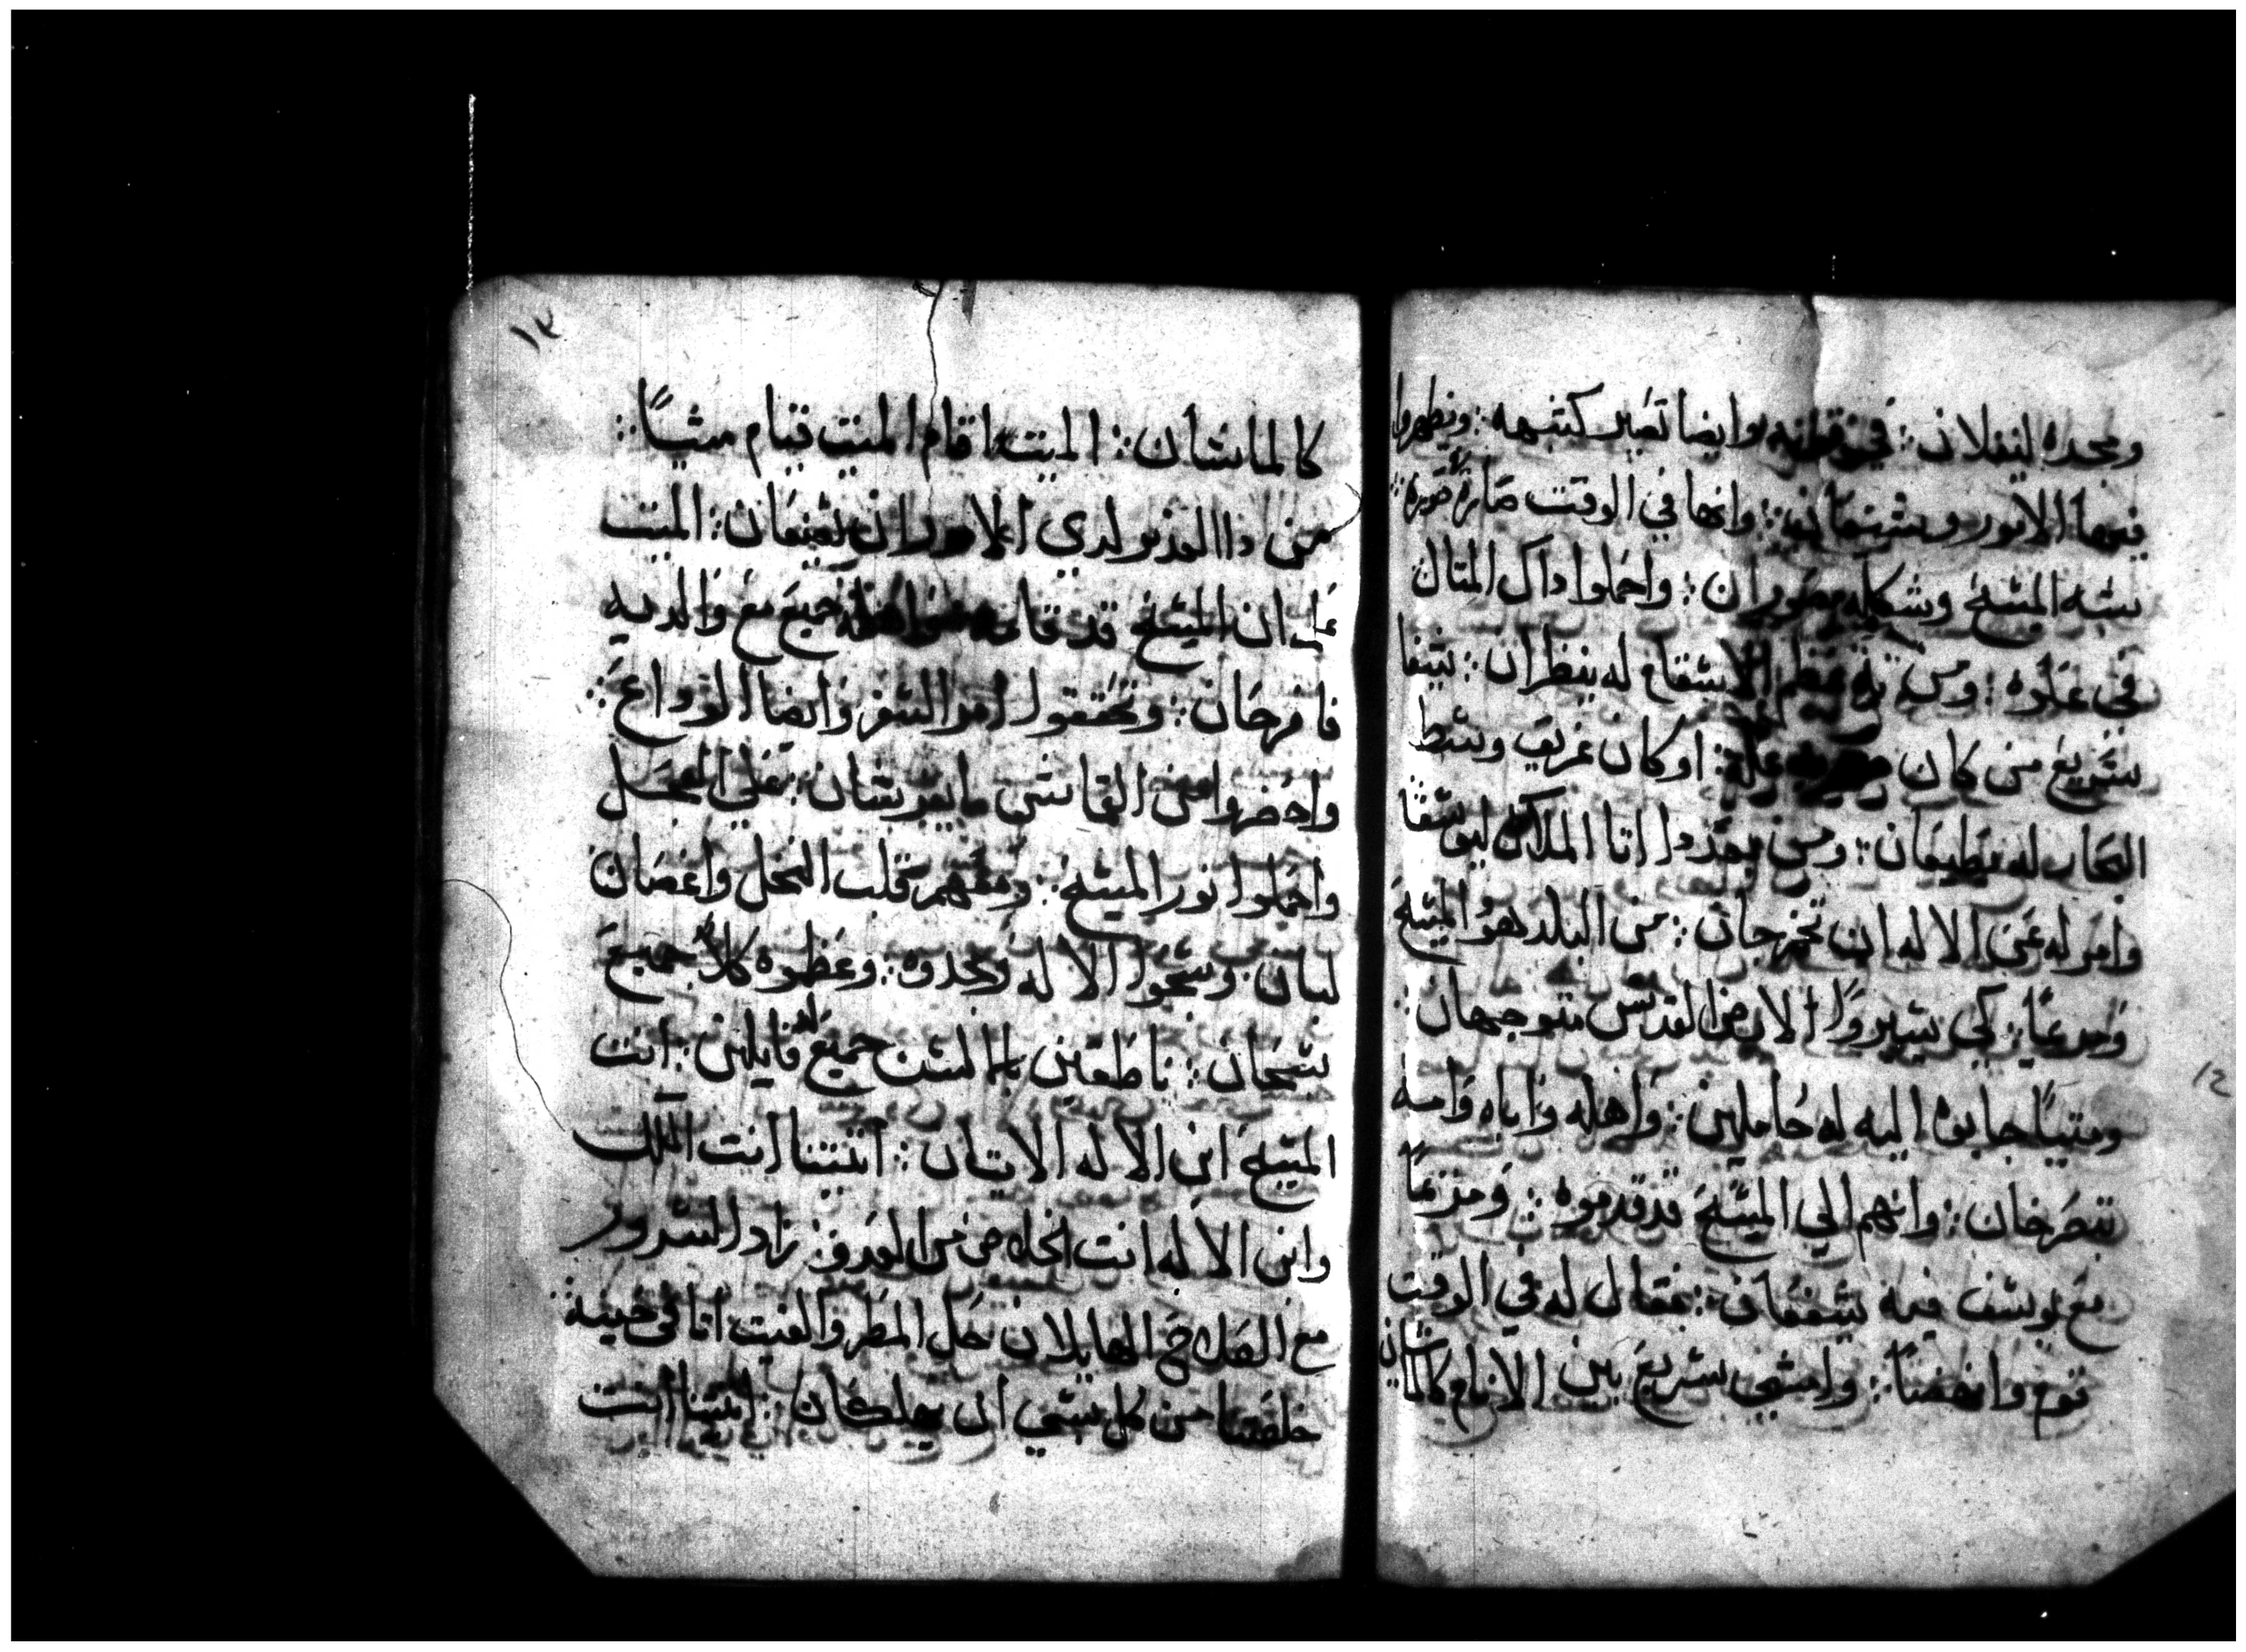 ومجده لينفلان ؞ في وايضا تصير كتبهه ؞ ويظهروا
فيها الامور ؞ وانها في الوقت صارة صوره ؞
بشبه المسيح وشكله مصوران ؞ واحملوا داك المتال
في علوه ؞ ومن به عظم الاسقام له ينظران ؞ يشفا
سريع من كان علة ؞ او كان غريق وسط
البحار له يطيعان ؞ ومن بعد دا اتا الملاك ليوسفا
وامر له عن الاله ان تخرجان ؞ من البلد هو المسيح
ومرعيا ؞ كي يسيروا الارض القدس متوجهان ؞
وميتا جابو اليه له حاملين ؞ واهله واباه وامه
تتصرخان ؞ وانهم الي المسيح قد قدموه ؞ ومريما
مع يوسف فيه يشفعان ؞ فقال له في الوقت
قوم وانهضا ؞ وامشي سريع بين الانام كالماشيان
١٢
١٣
كالماشان ؞ الميت اقام الميت قيام ميتيا ؞
من دا العدو لدي الامور ان يعنفان ؞ الميت
علي ان المسيح قد قامه جميع مع والديه
فافرحان ؞ وتحققوا امر السفر وايضا الوداع ؞
واحضروا من القماش ما يفرشان ؞ علي المحل
واحملوا نور المسيح ؞ ومعهم قلب النخل واغصان
لبان وسبحوا الاله ومجدوه ؞ وعظموه كلا جميع
سبحان ؞ ناطقين بالالسن جميع قايلين ؞ انت
المسيح ابن الاله الاتيان ؞ اتيتنا انت الملك
وابن الاله انت الخلاص من العدو ؞ زاد السرور
مع الفلاح الهايلان حل المطر والغيت اتا في حينه ؞
خلصتنا من كل شي ان يهلكان ؞ اتيتنا انت